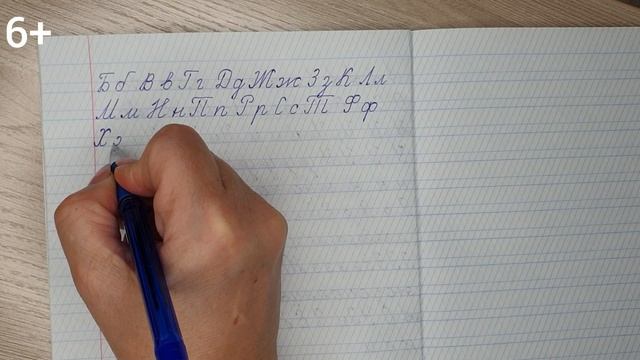 6+
Б б В в Г г Д д Ж ж З з К Л л
М м Н н П п Р р С с Т Ф ф
Х